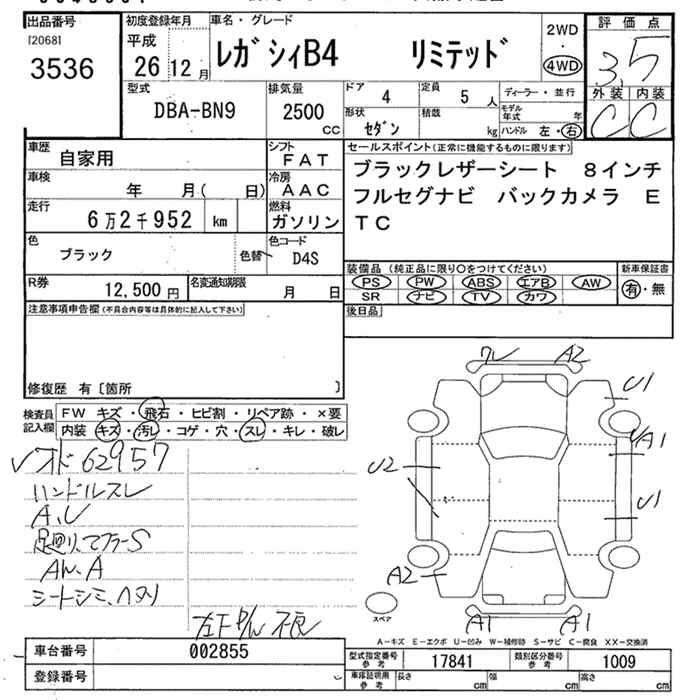 出品番号
[2068]
3536
初度登録年月
平成
26 12 月
車名・グレード
レガシィB4 リミテッド
2WD
・
4WD
評価点
3.5
外装 内装
C C
型式
DBA-BN9
排気量
2500
CC
ドア
4
定員
5 人
ディーラー・並行
形状
セダン
積載
kg
モデル年式 年
ハンドル 左・右
車歴
自家用
シフト
FAT
車検
年 月( 日)
冷房
AAC
走行
6万2千952 km
燃料
ガソリン
色
ブラック
色替
色コード
D4S
R券
12,500 円
名変通知期限
月 日
セールスポイント(正常に機能するものに限ります)
ブラックレザーシート 8インチ
フルセグナビ バックカメラ E
TC
装備品 (純正品に限り○をつけてください)
新車保証書
PS PW ABS エアB AW
有・無
SR ナビ TV カワ
後日品
注意事項申告欄(不具合内容等は具体的に記入して下さい)
修復歴 有[箇所 ]
検査員
記入欄
FW キズ・飛石・ヒビ割・リペア跡・×要
内装 キズ・汚レ・コゲ・穴・スレ・キレ・破レ
62957
ハンドルスレ
A、U
足廻り、マフラーS
A
シートシミ、ヘタリ
左下 不良
ワレ A2
U1
A1
U2
U1
A2
A1 A1
スペア
A-キズ E-エクボ U-凹み W-補修跡 S-サビ C-腐食 XX-交換済
車台番号
002855
登録番号
型式指定番号
参考
17841
類別区分番号
参考
1009
車庫証明用
参考
長さ cm
幅 cm
高さ cm